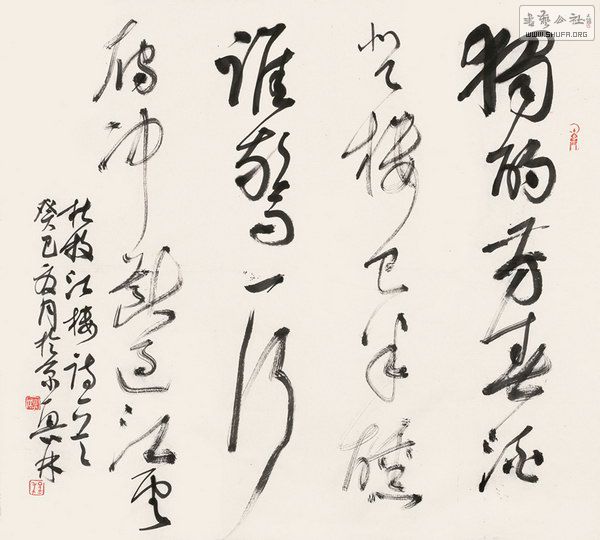 獨酌芳春酒
登樓已半醺
誰驚一行
雁冲斷過江雲
杜牧江樓詩一首
癸巳夏月於京
書藝公社
WWW.SHUFA.ORG